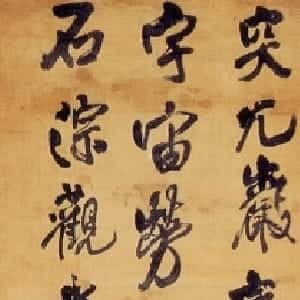 突兀巖
宇宙勞
石淙觀